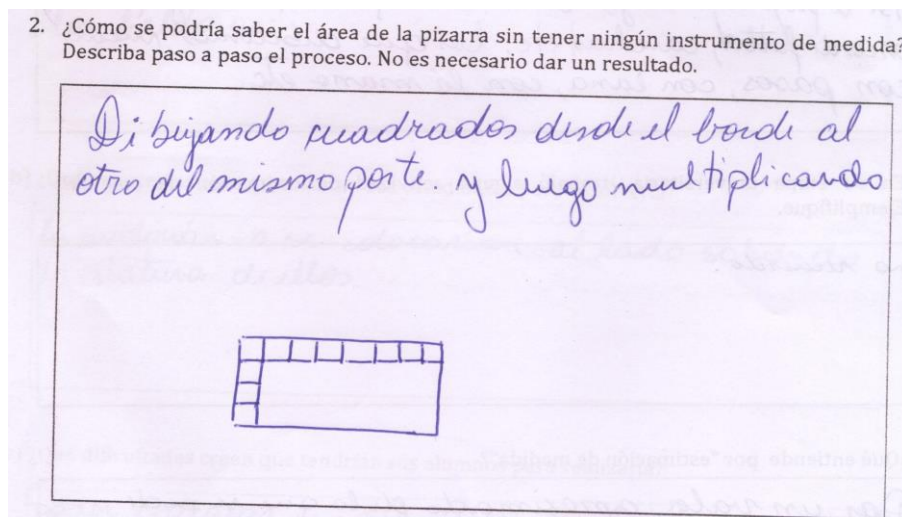 2. ¿Cómo se podría saber el área de la pizarra sin tener ningún instrumento de medida?
Describa paso a paso el proceso. No es necesario dar un resultado.
Dibujando cuadrados desde el borde al
otro del mismo porte y luego multiplicando